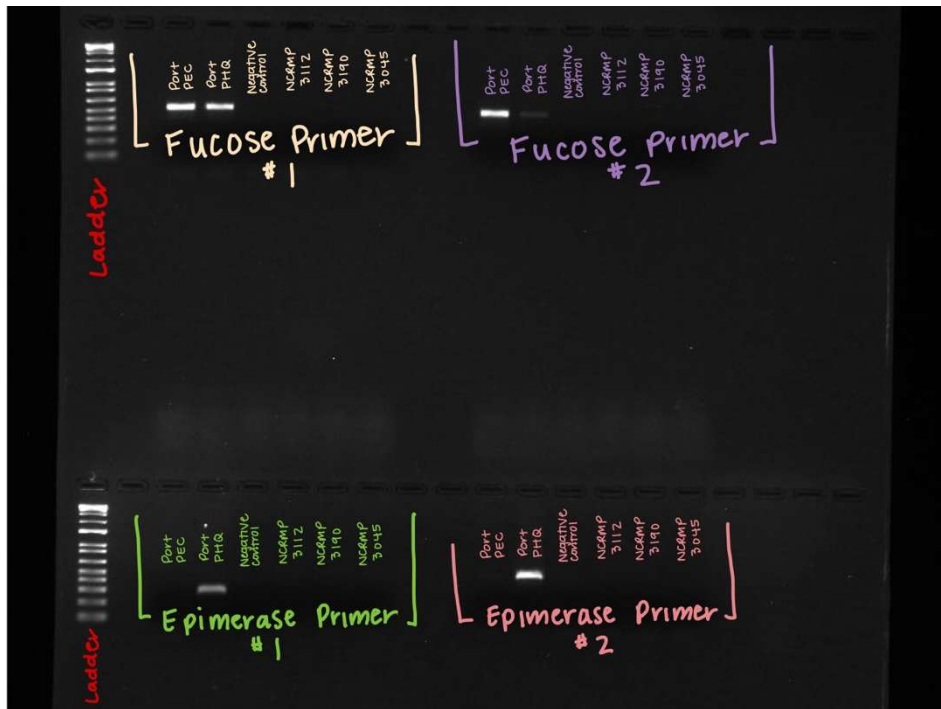 Port PEC
Port PHQ
Negative control
NCRMP 3112
NCRMP 3190
NCRMP 3045
Fucose Primer
# 1
Port PEC
Port PHQ
Negative control
NCRMP 3112
NCRMP 3190
NCRMP 3045
Fucose Primer
# 2
Ladder
Port PEC
Port PHQ
Negative control
NCRMP 3112
NCRMP 3190
NCRMP 3045
Epimerase Primer
# 1
Port PEC
Port PHQ
Negative control
NCRMP 3112
NCRMP 3190
NCRMP 3045
Epimerase Primer
# 2
Ladder